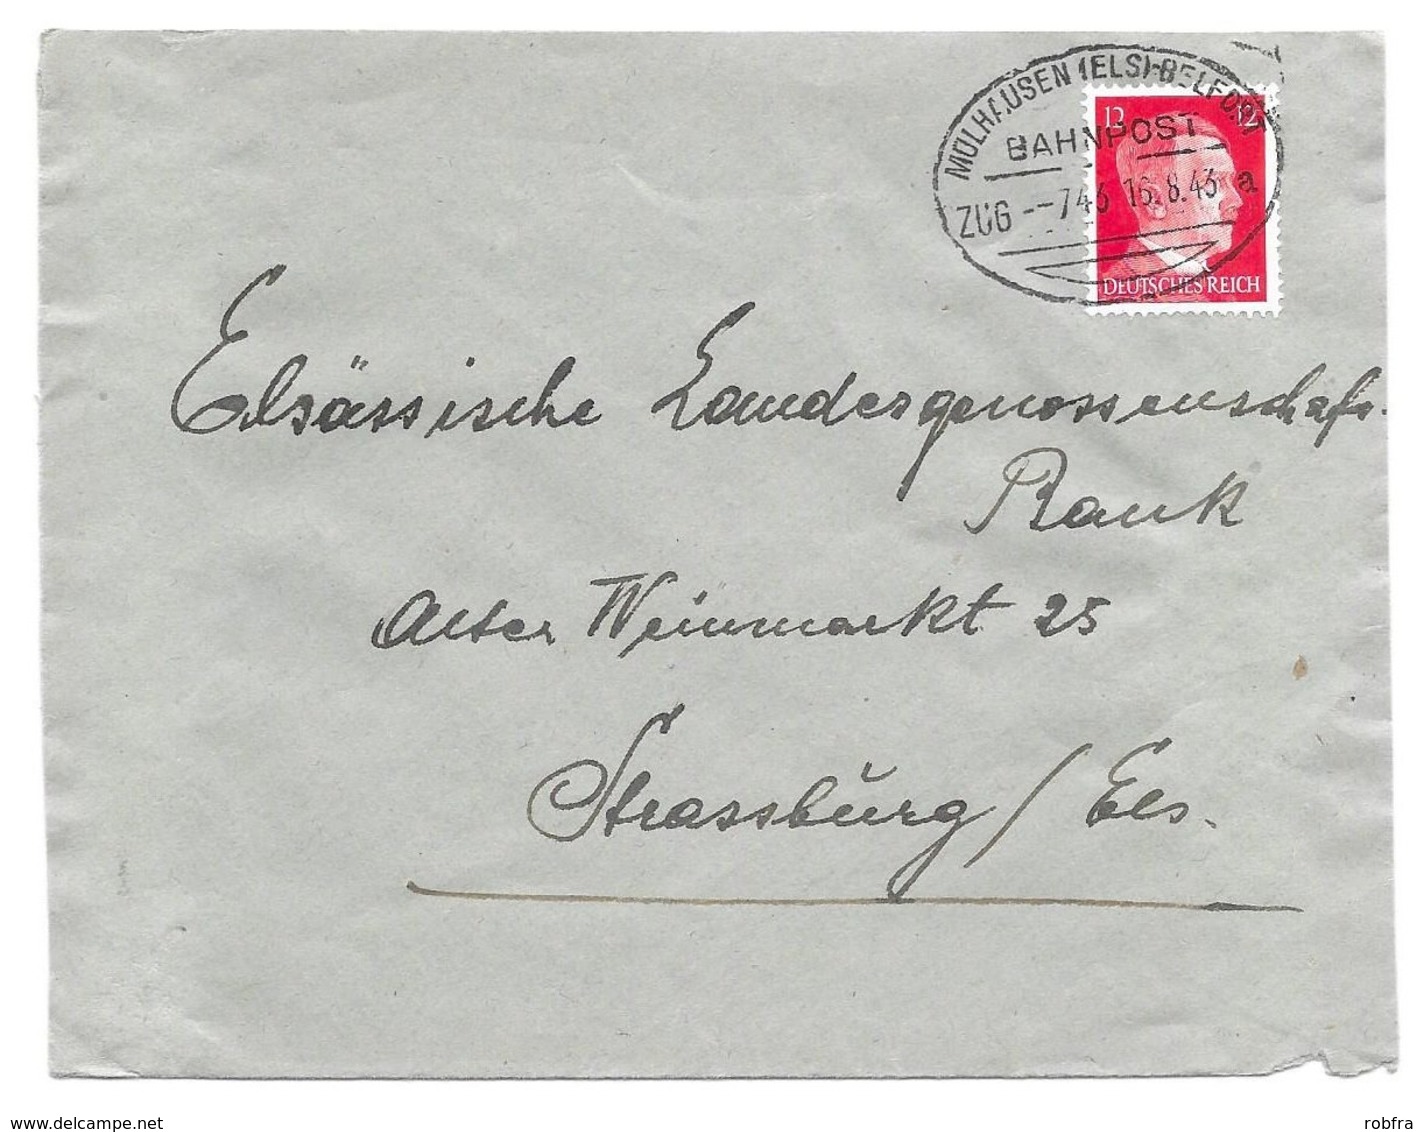 MÜLHAUSEN (ELS)-BELFORT
BAHNPOST
ZUG --743 16.8.43 a
12 12
DEUTSCHES REICH
Elsässische Landesgenossenschafs-
Bank
Alter Weinmarkt 25
Strassburg / Els.
www.delcampe.net
robfra